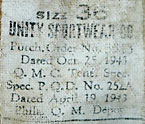 SIZE 36
UNITY SPORTWEAR CO
Purch. Order No.
Dated Oct. 25, 1943
Q. M. C. Tent. Spec.
Spec. P. Q. D. No. 252A
Dated April 19, 1943
Phila. Q. M. Depot